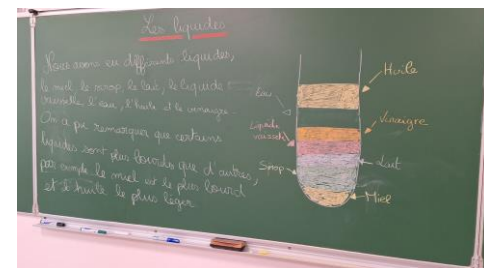 Les liquides
Nous avons eu différents liquides,
le miel, le sirop, le lait, le liquide
vaisselle, l'eau, l'huile et le vinaigre.
On a pu remarquer que certains
liquides sont plus lourds que d'autres,
par exemple le miel est le plus lourd
et l'huile le plus léger
Huile
Eau
Vinaigre
Liquide
vaisselle
Lait
Sirop
Miel